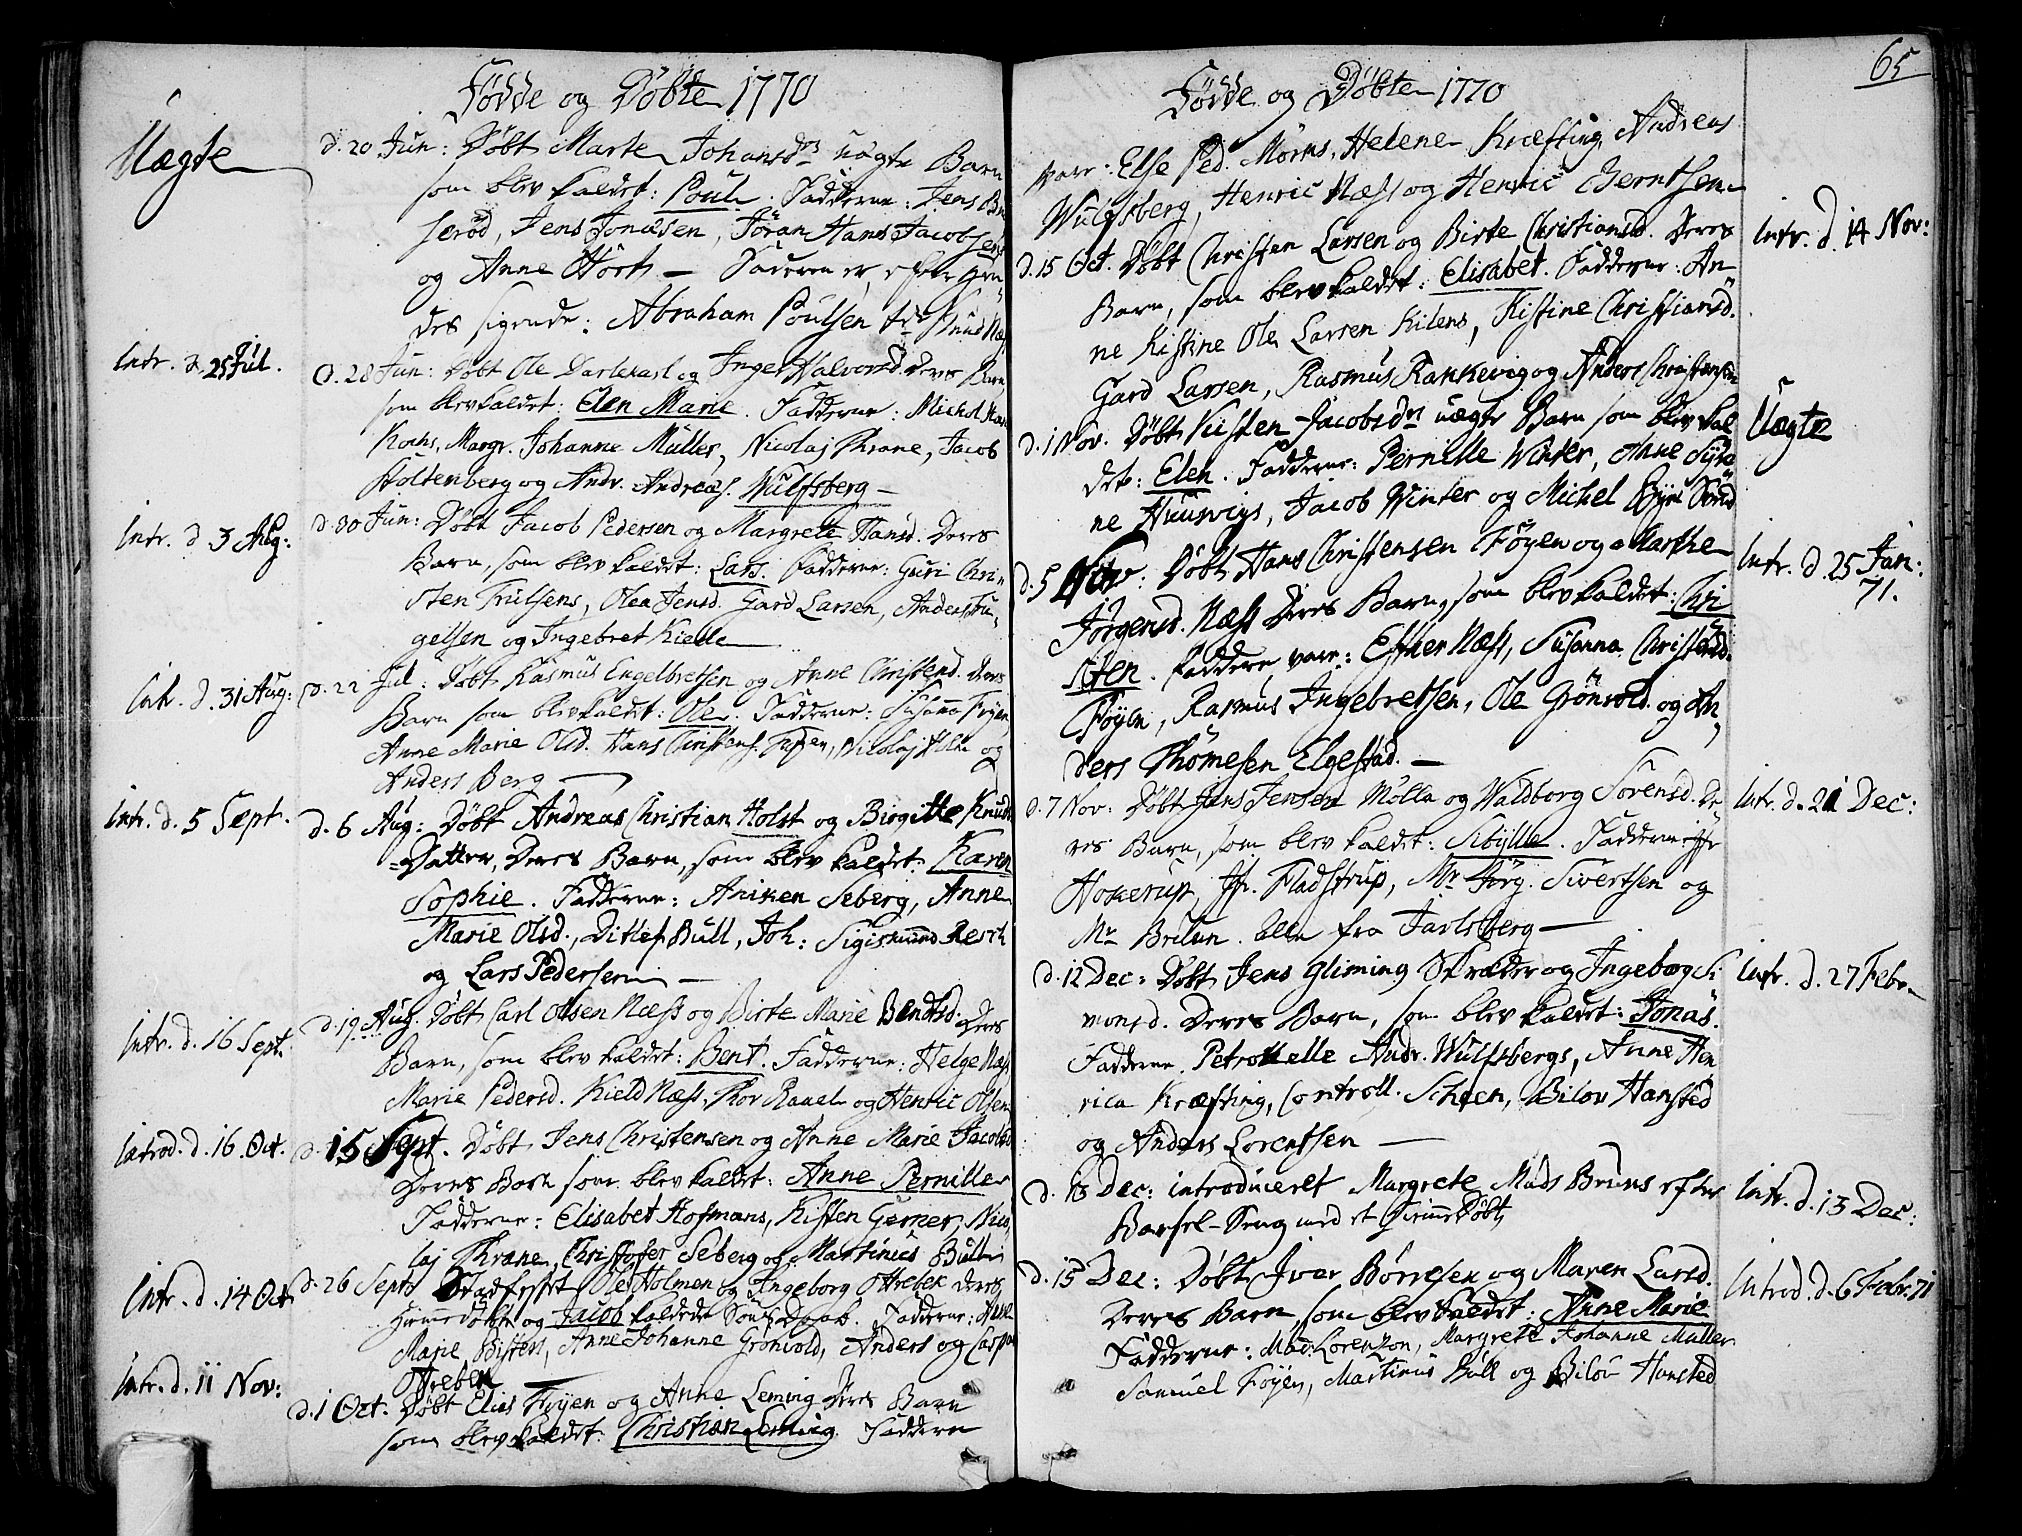 Fødde og Døbte 1770
Uægte
d. 20 Jun: Døbt Marte Johansdr uægte Barn
som blev kaldet: Poul. Fadderne: Jens
serød, Jens Jonassen, Jöran Hans Jacobsens
og Anne Hörk — Faderen er, efter hen¨
des sigende: Abraham Poulsen
Intr. d. 25 Jul.
d. 28 Jun: Døbt Ole Darlekarl og Inger Halvorsd. Deres Barn
som blev kaldet: Elen Marie. Fadderne: Michel
Kochs, Margr. Johanne Müller, Nicolaj Thrane, Jacob
Stoltenberg og Andr. Andreas. Wulfsberg —
Intr. d 3 Aug:
d. 30 Jun: Døbt Jacob Pedersen og Margrete Hansd. Deres
Barn, som blev kaldet: Lars. Fadderne: Guri Chri¨
sten Trulsens, Olea Jensd. Gard Larsen, Anders Tru¨
gelsen og Ingebret Kielle
Intr. d. 31 Aug:
d. 22 Jul: Døbt Rasmus Engelbretsen og Anne Christend. Deres
Barn som blev kaldet: Ole. Fadderne: Susanna Föyen,
Anne Marie Olsd. Hans Christens. Föyen, Nicolaj Holm og
Anders Berg —
Intr. d. 5 Sept.
d. 6 Aug: Døbt Andreas Christian Holst og Birgitte Knuds
=Datter, Deres Barn, som blev kaldet: Karen
Sophie. Fadderne: Aniken Seberg, Anne
Marie Olsd., Ditlef Bull, Joh: Sigismund Resch
og Lars Pedersen —
Intr. d. 16 Sept.
d. 19 Aug. Døbt Carl Olsen Næss og Birte Marie Bentsd. Deres
Barn, som blev kaldet: Bent. Fadderne: Helge Næss
Marie Pedersd. Kield Næss, Thor Rauel og Henric Olsen
Introd. d. 16 Oct.
d. 15 Sept. Døbt Jens Christensen og Anne Marie Jacobsd
Deres Barn som blev kaldet: Anne Pernille
Fadderne: Elisabet Hofmans, Kisten Gerner, Nico¨
laj Thrane, Christofer Seberg og Martinus Bull
Intr. d. 14 Oct.
d. 26 Sept. Stadfestet Ole Holmen og Ingeborg Ottrebek Deres
Hiemmedøbte og Jacob kaldede Søns Daab. Fadderne: Anne
Marie Bisters, Anne Johanne Grönvold, Anders og Casper
Intr. d. 11 Nov:
d. 1 Oct. Døbt Elias Föyen og Anne Leming Deres Barn
som blev kaldet: Christian Leming. Faddere
65
Fødde og Døbte 1770
vare: Else Ped. Mörks, Helene Kræfting, Andreas
Wulfsberg, Henric Næss og Henric Berntsen
Intr. d. 14 Nov:
d. 15 Oct. Døbt Christen Larsen og Birte Christiansd. Deres
Barn, som blev kaldet: Elisabet. Fadderne: An¨
ne Kistine Ole Larsen Kilens, Kistine Christiansd.
Gard Larsen, Rasmus Rakkevig og Anders Christensen
Uægte
d. 1 Nov. Døbt Kisten Jacobsdr uægte Barn som blev kal
det: Elen. Fadderne: Pernille Winter, Anne
ne Huusvigs, Jacob Winter og Michel
Intr. d. 25 Jan:
71.
d. 5 Nov: Døbt Hans Christensen Föyen og Marthe
Jörgensd. Næss Deres Barn, som blev kaldet: Chri
sten. Faddere vare: Esther Næss, Susanna Christensd.
Föyen, Rasmus Ingebretsen, Ole Grönvold og An¨
ders Thomesen Elgestad. —
Intr. d. 21 Dec:
d. 7 Nov: Døbt Jans Jensen Mölla og Waldborg Sörensd. De¨
res Barn, som blev kaldet: Sibylle. Fadderne: Jfr
Hokerup, Jfr. Fladstrup, Mr Jörg. Sivertsen og
Mr Brelun. alle fra Jarlsberg —
Intr. d. 27 Febr.
d. 12 Dec: Døbt Jens Gliming Skræder og Ingeborg Si
monsd. Deres Barn, som blev kaldet: Jonas.
Fadderne. Petronelle Andr. Wulfsbergs, Anne Hen
rica Kræfting, Controll. Scheen, Bilov Hansted
og Anders Lorentsen —
Intr. d. 13 Dec:
d. 13 Dec: introduceret Margrete Mads Bruns efter
Barsel-Seng med et Hiemmedøbt
Introd. d. 6 Febr. 71
d. 15 Dec: Døbt Iver Börresen og Maren Larsd.
Deres Barn, som blev kaldet: Anne Marie
Fadderne: Mad: Lorenzon, Margrete Johanne Müller
Samuel Föyen, Martinus Bull og Bilov Hansted